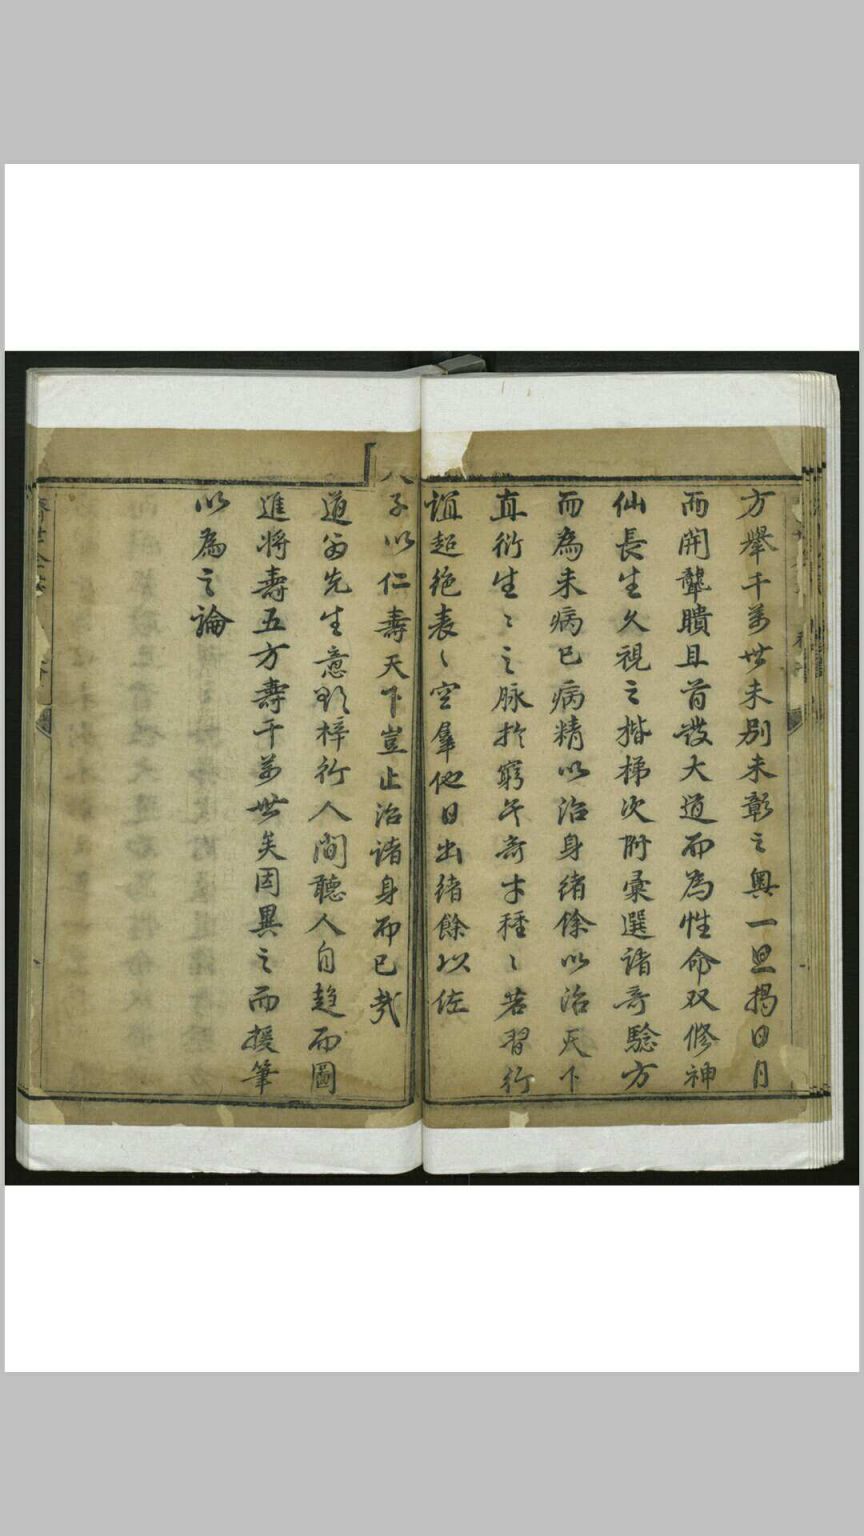 方舉千萬世未别未彰之奧一旦揭日月
而開聾瞶且首發大道而為性命双修神
仙長生久視之揩梯次附彙選諸奇驗方
而為未病已病精以治身緒餘以治天下
直衍生〻之脉扵窮
奇才種〻若習行
誼超絶表〻空羣他日出緒餘以佐
天子以仁壽天下豈止治諸身而已哉
道翁先生意欤梓行人間聽人自趋而圖
進将壽五方壽千萬世矣因異之而援筆
以為之論